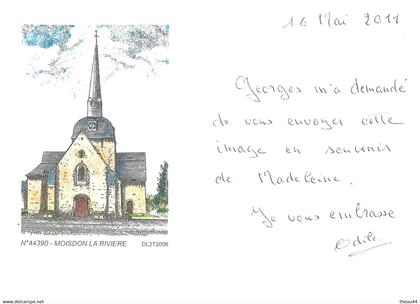 16 Mai 2011
Georges m'a demandé
de vous envoyer cette
image en souvenir
de Madeleine.
Je vous embrasse
Odile
N°44390 - MOISDON LA RIVIERE
DL2T2006
www.delcampe.net
theau44